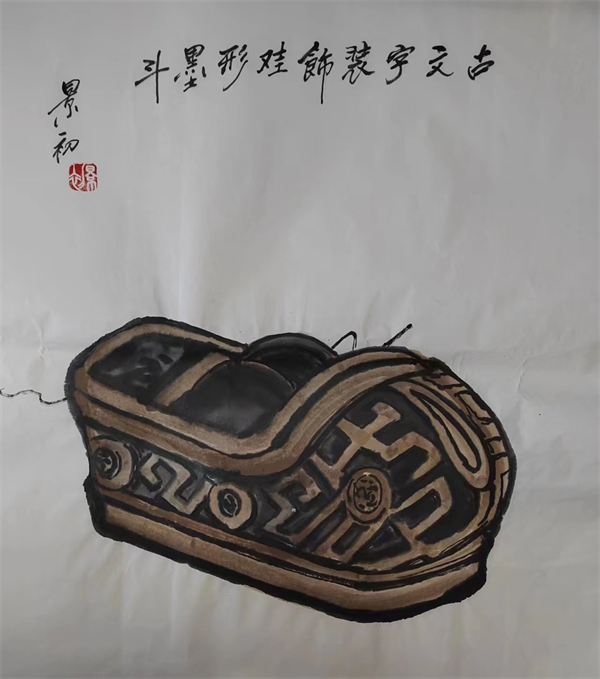 古文字装飾娃形墨斗
景初